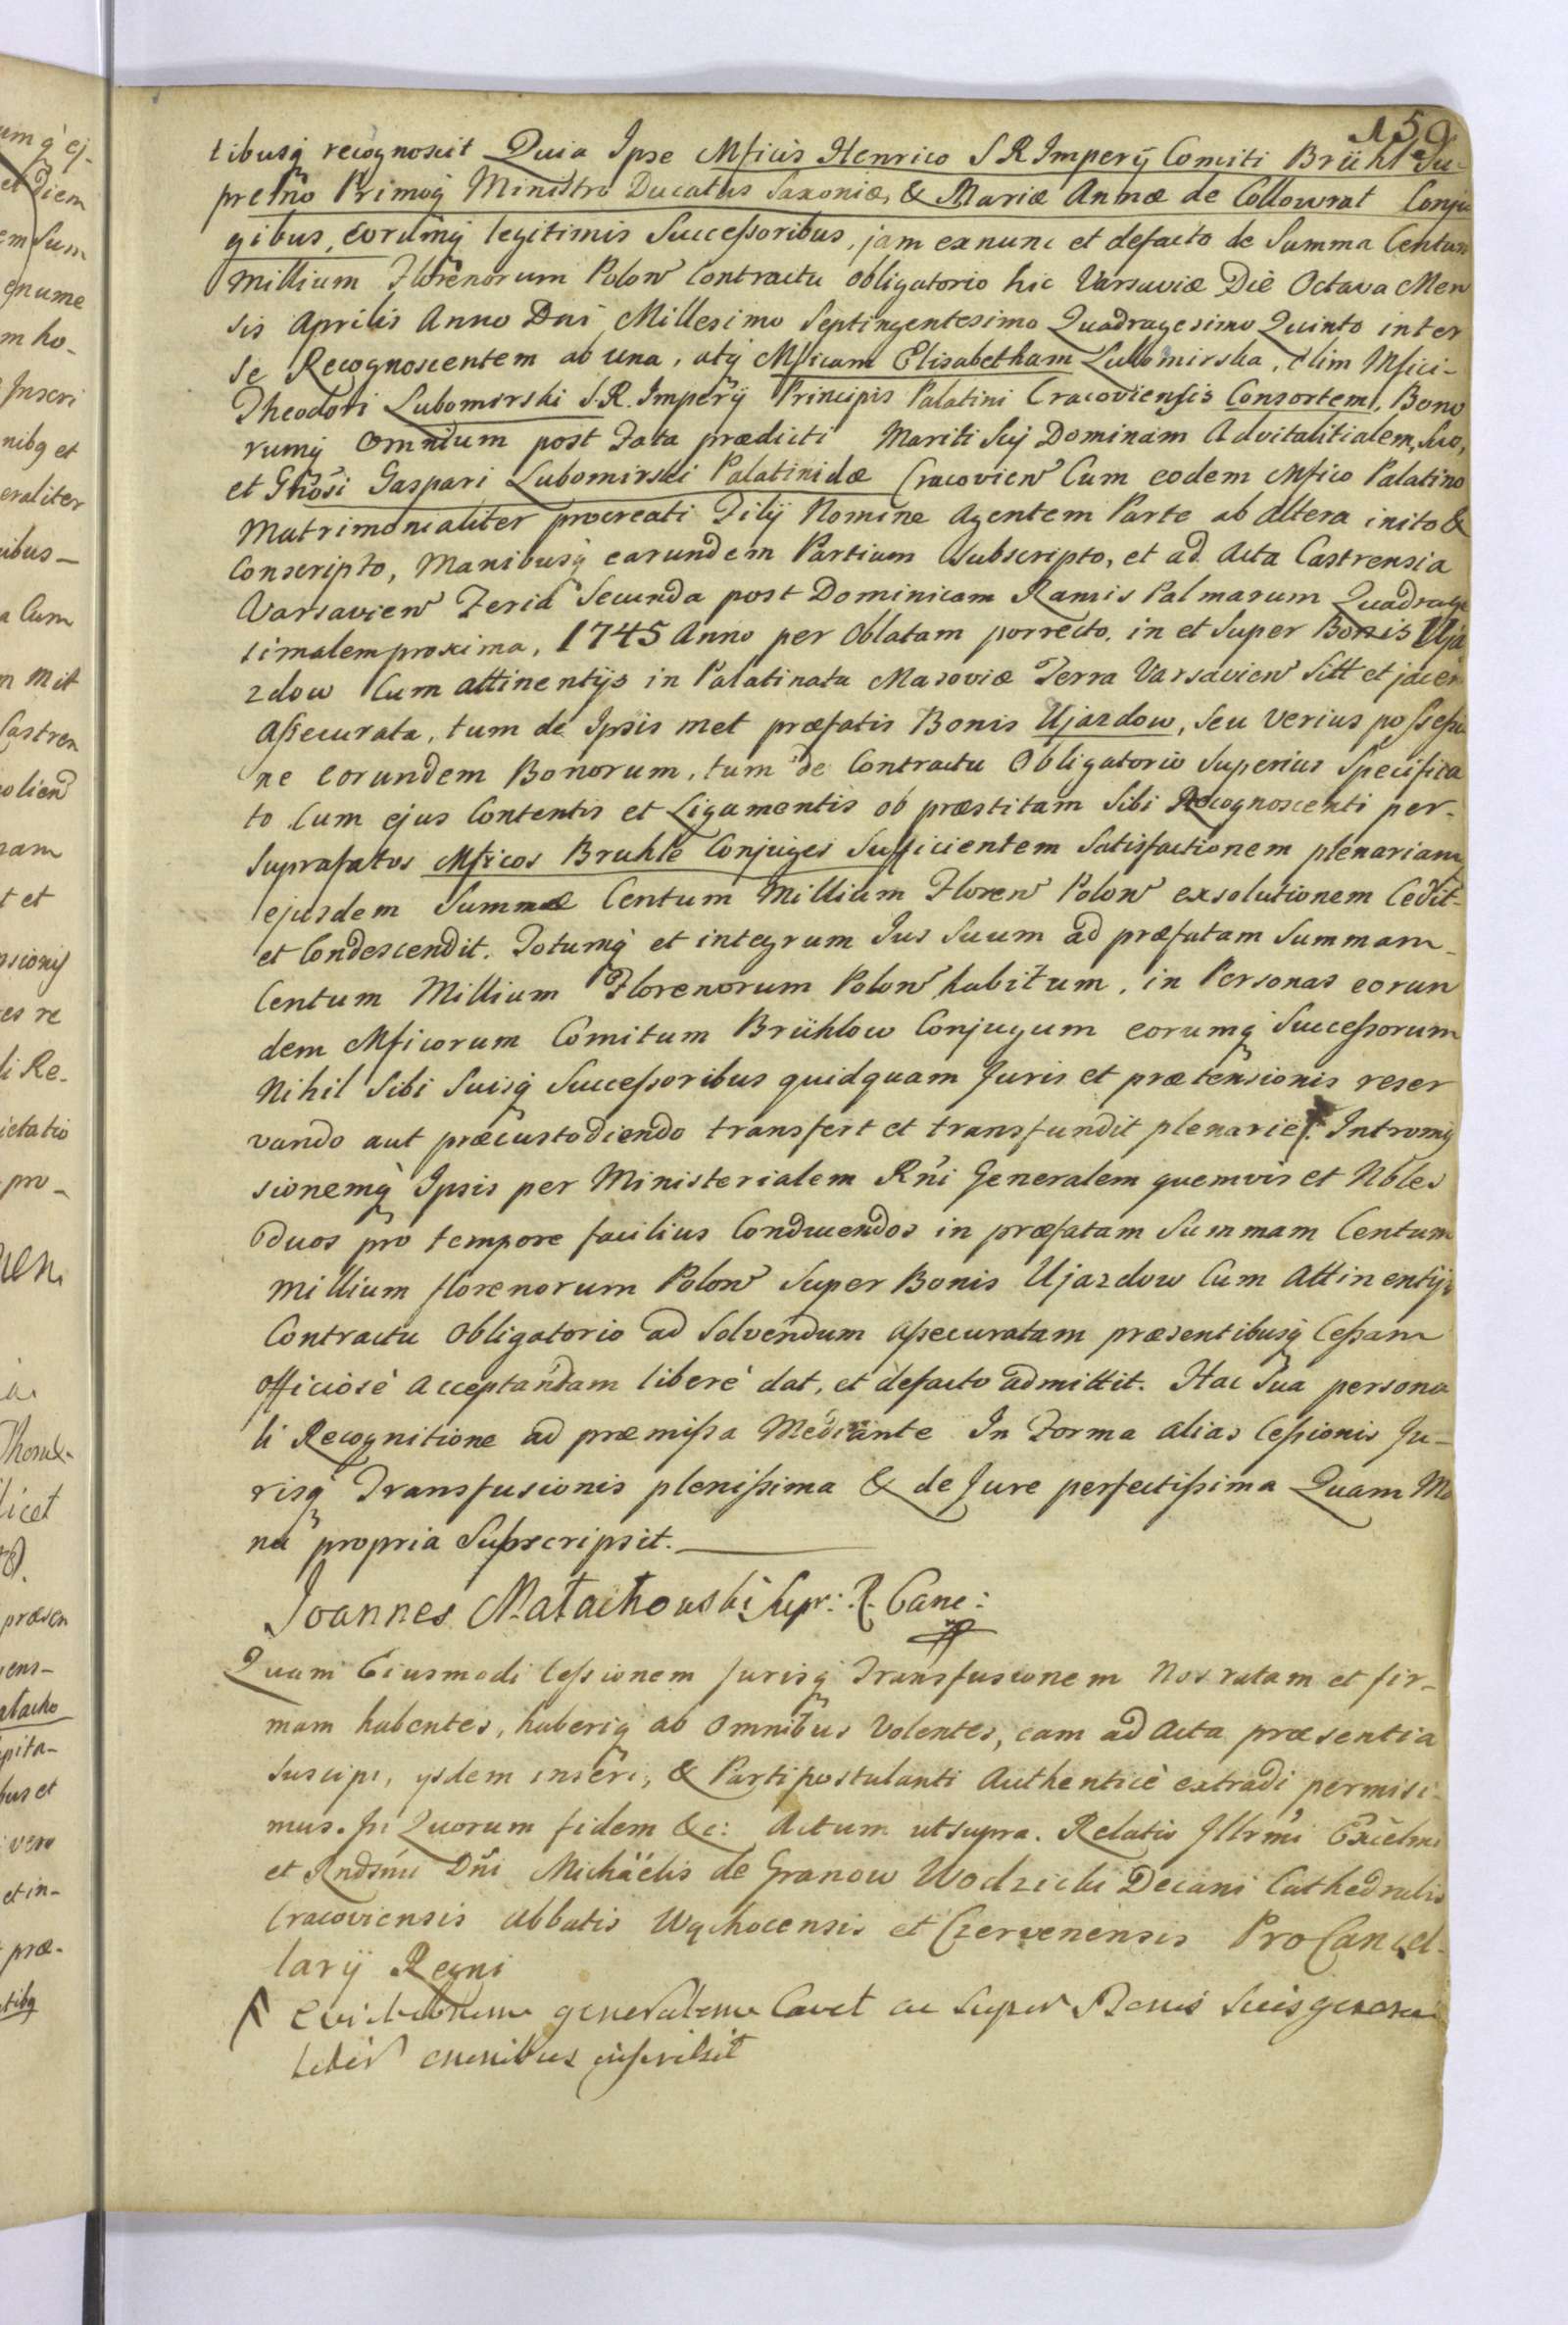 159
tibusq recognoscit Quia Ipse Mficis Henrico S R Imperÿ Comiti Brühl Su-
premo Primoq Ministro Ducatus Saxoniæ, & Mariæ Annæ de Collowrat Conju
gibus, eorumq legitimis Succeßoribus, jam exnunc et defacto de Summa Centum
millium Florenorum Polon Contractu obligatorio hic Varsaviæ Die Octava Men
sis Aprilis Anno Dni Millesimo Septingentesimo Quadragesimo Quinto inter
se Recognoscentem ab una, atq Mficam Elisabetham Lubomirska, olim Mfici-
Theodori Lubomirski S.R. Imperÿ Principis Palatini Cracoviensis Consortem, Bono
rumq omnium post Fata prædicti Mariti Sui Dominam Advitalitialem, Suo,
et Gnosi Gaspari Lubomirski Palatinidæ Cracovien Cum eodem Mfico Palatino
Matrimonialiter procreati Filij Nomine Agentem Parte ab altera inito &
Conscripto, Manibusq earundem Partium Subscripto, et ad Acta Castrensia
Varsavien Feria Secunda post Dominicam Ramis Palmarum Quadrage
simalem proxima, 1745 Anno per Oblatam porrecto, in et Super Bonis Uja
zdow Cum attinentijs in Palatinatu Masoviæ Terra Varsavien Sitt et jacen
Aßecurata, tum de Ipsis met præfatis Bonis Ujazdow, Seu Verius poßeßio
ne eorundem Bonorum, tum de Contractu Obligatorio Superius Specifica
to Cum ejus Contentis et Ligamentis ob præstitam Sibi Recognoscenti per-
Suprafatos Mficos Bruhle Conjuges Sufficientem Satisfactionem plenariam
ejusdem Summæ Centum Millium Floren Polon exsolutionem Cedit-
et Condescendit. Totumq et integrum Jus Suum ad præfatam Summam-
Centum Millium Florenorum Polon habitum, in Personas eorun
dem Mficorum Comitum Brühlow Conjugum eorumq Succeßorum
Nihil Sibi Suisq Succeßoribus quidquam Juris et prætensionis reser
vando aut præcustodiendo transfert et transfundit plenarie. Intromiß
sionemq Ipsis per Ministerialem Rni Generalem quemvis et Nbles
duos pro tempore facilius Conducendos in præfatam Summam Centum
millium florenorum Polon Super Bonis Ujazdow Cum Attinentijs
Contractu Obligatorio ad Solvendum Aßecuratam præsentibusq Ceßam
officiose Acceptandam libere dat, et defacto admittit. Hac Sua persona
li Recognitione ad præmißa Mediante In Forma alias Ceßionis Ju-
risq Transfusionis plenißima & de Jure perfectißima Quam Ma
nu propria Subscripsit.
Joannes Małachowski Supr: R. Canc:
Quam Eiusmodi Ceßionem Jurisq Transfusionem Nos ratam et fir-
mam habentes, haberiq ab omnibus Volentes, eam ad Acta præsentia
Suscipi, ysdem inseri, & Parti postulanti Authentice extradi permisi-
mus. In Quorum fidem &c: Actum utsupra. Relatio Illrmi Excelmi
et Rndsmi Dni Michäelis de Granow Wodzicki Decani Cathedralis
Cracoviensis Abbatis Wąchocensis et Czervenensis ProCancel-
larÿ Regni
Evictionem generalem Cavet ac super Bonis suis genera
liter omnibus inscribit